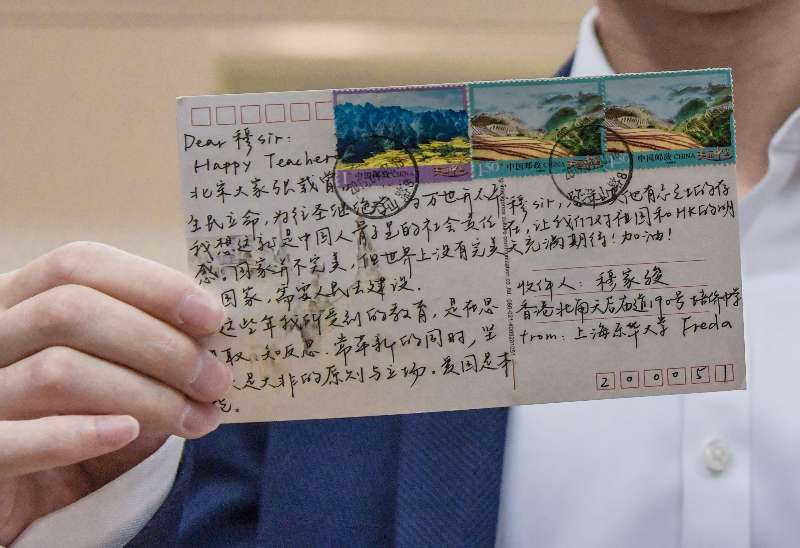 Dear 穆sir:
Happy Teacher
北宋大家张载曾
生民立命，为往圣继绝学，为万世开太平
我想这就是中国人骨子里的社会责任
感。国家并不完美，但世界上没有完美
国家，需要人民去建设。
这些年我所受到的教育，是在思
取、知反思、常革新的同时，坚
大是大非的原则与立场。爱国是本
穆sir，
在，让我们对祖国和HK的明
天充满期待！加油！
收件人：穆家骏
香港北角天后庙道190号 培侨中学
from：上海东华大学 Freda
200051
1 中国邮政 CHINA
1.50 中国邮政 CHINA
1.50 中国邮政 CHINA